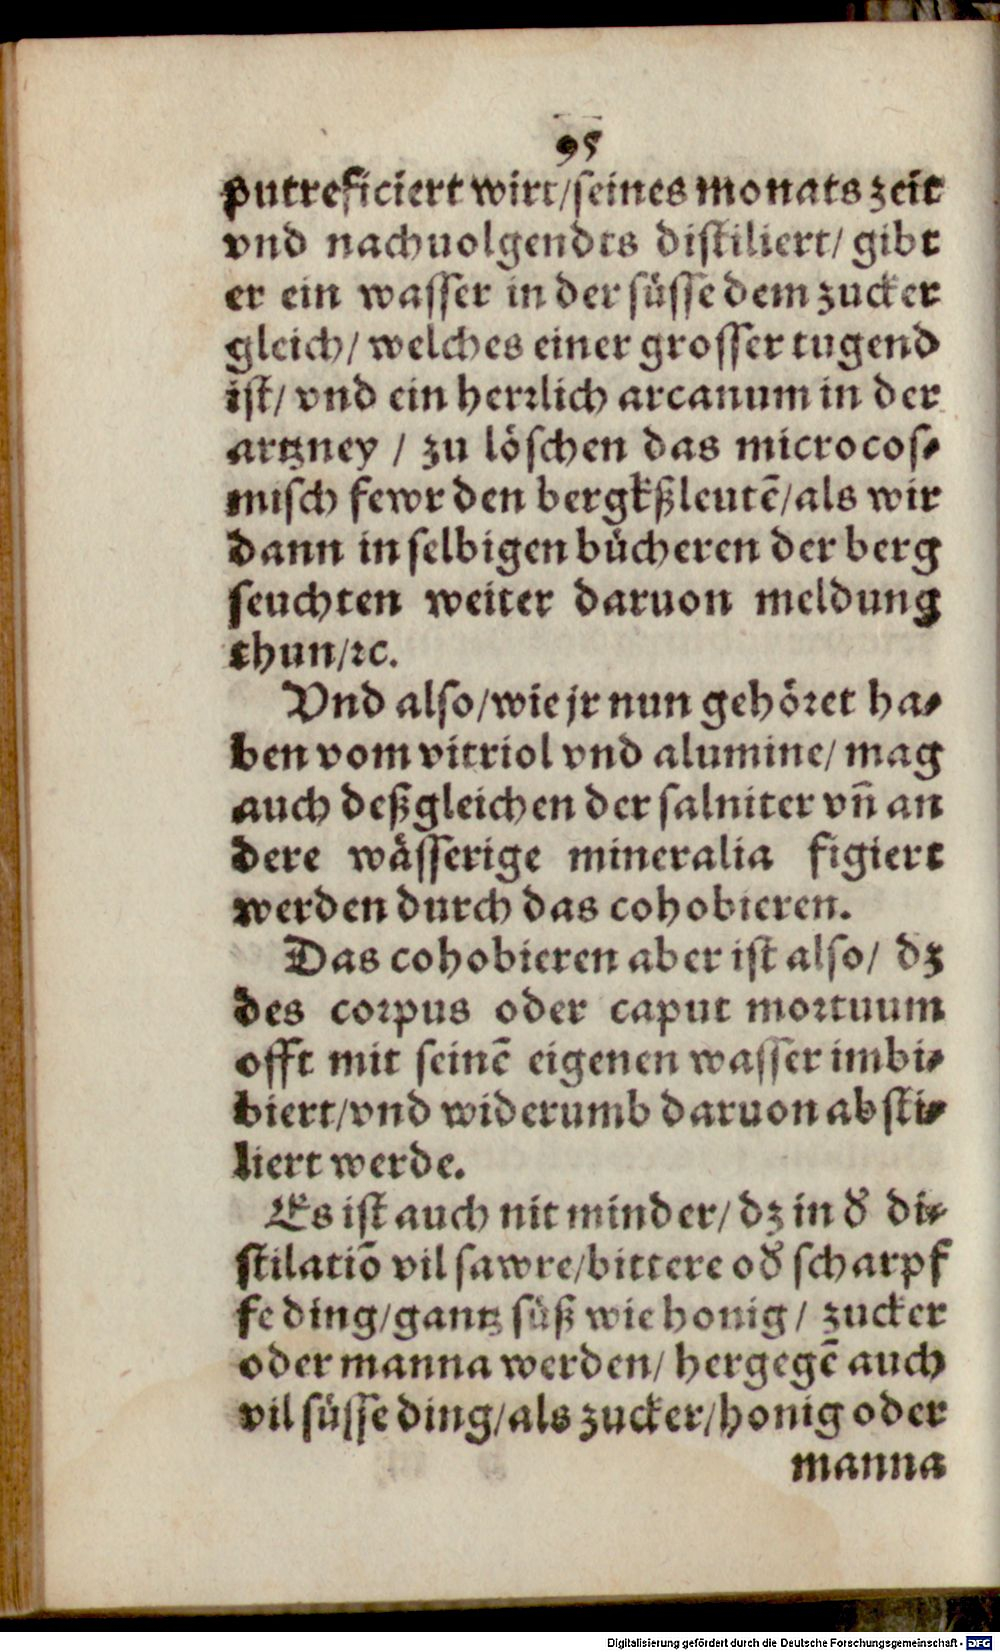 95
putreficiert wirt/seines monats zeit
vnd nachuolgendts distiliert/ gibt
er ein wasser in der süsse dem zucker
gleich/ welches einer grosser tugend
ist/ vnd ein herrlich arcanum in der
artzney / zu löschen das microcos-
misch fewr den bergkßleutē/als wir
dann in selbigen bücheren der berg
seuchten weiter daruon meldung
thun/ꝛc.
Vnd also/wie jr nun gehöret ha-
ben vom vitriol vnd alumine/ mag
auch deßgleichen der salniter vñ an
dere wässerige mineralia figiert
werden durch das cohobieren.
Das cohobieren aber ist also/ dz
des corpus oder caput mortuum
offt mit seinē eigenen wasser imbi-
biert/vnd widerumb daruon absti-
liert werde.
Es ist auch nit minder/ dz in d̕ di-
stilatiō vil sawre/bittere od̕ scharpf
fe ding/gantz süß wie honig/ zucker
oder manna werden/ hergegē auch
vil süsse ding/als zucker/honig oder
manna
Digitalisierung gefördert durch die Deutsche Forschungsgemeinschaft - DFG